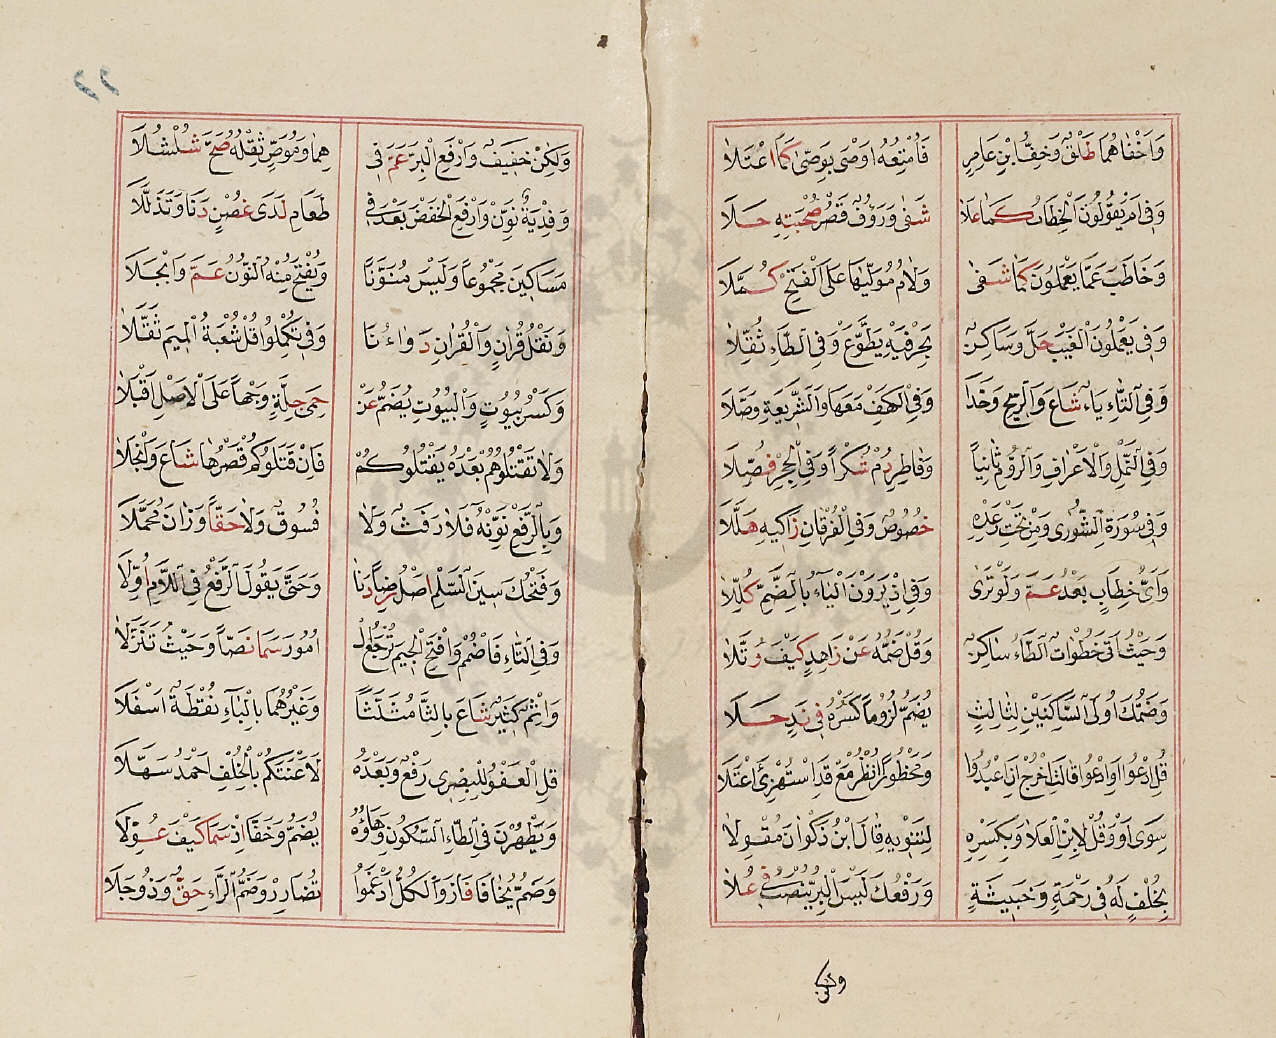 وَاَخْفَاهُمَا طَلْقٌ وَخِفُّ ابْنِ عَامِرٍ فَاُمْتِعُهُ اَوْصٰى بِوَصّٰى كَمَا اعْتَلَا
وَفِي اَمْ يَقُولُونَ الْخِطَابُ كَمَا عَلَا شَفٰى وَرَؤُفٌ قَصْرُ صُحْبَتِهِ حَلَا
وَخَاطَبَ عَمَّا يَعْمَلُونَ كَمَا شَفٰى وَلَامُ مُوَلّٰيهَا عَلَى الْفَتْحِ كُمَّلَا
وَفِي يَعْمَلُونَ الْغَيْبَ حَلَّ وَسَاكِنٌ بِحَرْفَيْهِ يَطَّوَّعْ وَفِي الطَّاءِ ثُقِّلَا
وَفِي التَّاءِ يَاءٌ شَاعَ وَالرِّيحَ وَحَّدَا وَفِي الْكَهْفِ مَعَهَا وَالشَّرِيعَةِ وَصَّلَا
وَفِي النَّمْلِ وَالْاَعْرَافِ وَالرُّومِ ثَانِيًا وَفَاطِرِ دُمْ شُكْرًا وَفِي الْحِجْرِ فُصِّلَا
وَفِي سُورَةِ الشُّورٰى وَمِنْ تَحْتِ رَعْدِهِ خُصُوصٌ وَفِي الْفُرْقَانِ زَاكِيهِ هَلَّلَا
وَاَيُّ خِطَابٍ بَعْدُ عَمَّ وَلَوْ تَرٰى وَفِي اِذْ يَرَوْنَ الْيَاءُ بِالضَّمِّ كُلِّلَا
وَحَيْثُ اَتٰى خُطُوَاتٌ الطَّاءُ سَاكِنٌ وَقُلْ ضَمُّهُ عَنْ زَاهِدٍ كَيْفَ رَتَّلَا
وَضَمُّكَ اُولَى السَّاكِنَيْنِ لِثَالِثٍ يُضَمُّ لُزُومًا كَسْرُهُ فِي نَدٍ حَلَا
قُلِ ادْعُوا اَوِ ادْعُوا قَالَتِ اخْرُجْ اَنِ اعْبُدُوا وَمَحْظُورًا انْظُرْ مَعْ قَدِ اسْتُهْزِئَ اعْتَلَا
سِوٰى اَوْ وَقُلْ لِابْنِ الْعَلَا وَبِكَسْرِهِ لِتَنْوِيهِ قَالَ ابْنُ ذَكْوَانَ مُقْوِلَا
بِخُلْفٍ لَهُ فِي رَحْمَةٍ وَخَبِيثَةٍ وَرَفْعُكَ لَيْسَ الْبِرُّ يُنْصَبُ فِي عُلَا
وَلٰكِنْ خَفِيفٌ وَارْفَعِ الْبِرَّ عَمَّ فِي هِمَا وَمُوَصٍّ ثِقْلُهُ صَحَّ شُلْشُلَا
وَفِدْيَةُ نَوِّنْ وَارْفَعِ الْخَفْضَ بَعْدُ فِي طَعَامِ لَدٰى غُصْنٍ دَنَا وَتَذَلَّلَا
مَسَاكِينَ مَجْمُوعًا وَلَيْسَ مُنَوَّنًا وَيُفْتَحُ مِنْهُ النُّونُ عَمَّ وَاَبْجَلَا
وَنَقْلُ قُرَانٍ وَالْقُرَانِ دَوَاءُنَا وَفِي تُكْمِلُوا قُلْ شُعْبَةُ الْمِيمَ ثَقَّلَا
وَكَسْرُ بُيُوتٍ وَالْبُيُوتِ يُضَمُّ عَنْ حِمٰى جِلَّةٍ وَجْهًا عَلَى الْاَصْلِ اَقْبَلَا
وَلَا تَقْتُلُوهُمْ بَعْدَهُ يَقْتُلُوكُمُ فَاِنْ قَتَلُوكُمْ قَصْرُهَا شَاعَ وَانْجَلَا
وَبِالرَّفْعِ نَوِّنْهُ فَلَا رَفَثٌ وَلَا فُسُوقٌ وَلَا حَقًّا وَزَانَ مُحَمَّلَا
وَفَتْحُكَ سِينَ السِّلْمِ اَصْلُ رِضًا دَنَا وَحَتّٰى يَقُولَ الرَّفْعُ فِي اللَّامِ اُوِّلَا
وَفِي التَّاءِ فَاضْمُمْ وَافْتَحِ الْجِيمَ تُرْجَعُ الْ اُمُورُ سَمَا نَصًّا وَحَيْثُ تَنَزَّلَا
وَاِثْمٌ كَثِيرٌ شَاعَ بِالثَّا مُثَلَّثًا وَغَيْرُهُمَا بِالْبَاءِ نُقْطَةٌ اَسْفَلَا
قُلِ الْعَفْوُ لِلْبِصْرِي رَفْعٌ وَبَعْدَهُ لَاَعْنَتَكُمْ بِالْخُلْفِ اَحْمَدُ سَهَّلَا
وَيَطْهُرْنَ فِي الطَّاءِ السُّكُونُ وَهَاؤُهُ يُضَمُّ وَخَفَّا اِذْ سَمَا كَيْفَ عُوِّلَا
وَضَمُّ يُخَافَا فَازَ وَالْكُلُّ اَدْغَمُوا تُضَارِرْ وَضَمُّ الرَّاءِ حَقٌّ وَذُو جَلَا
ولكن